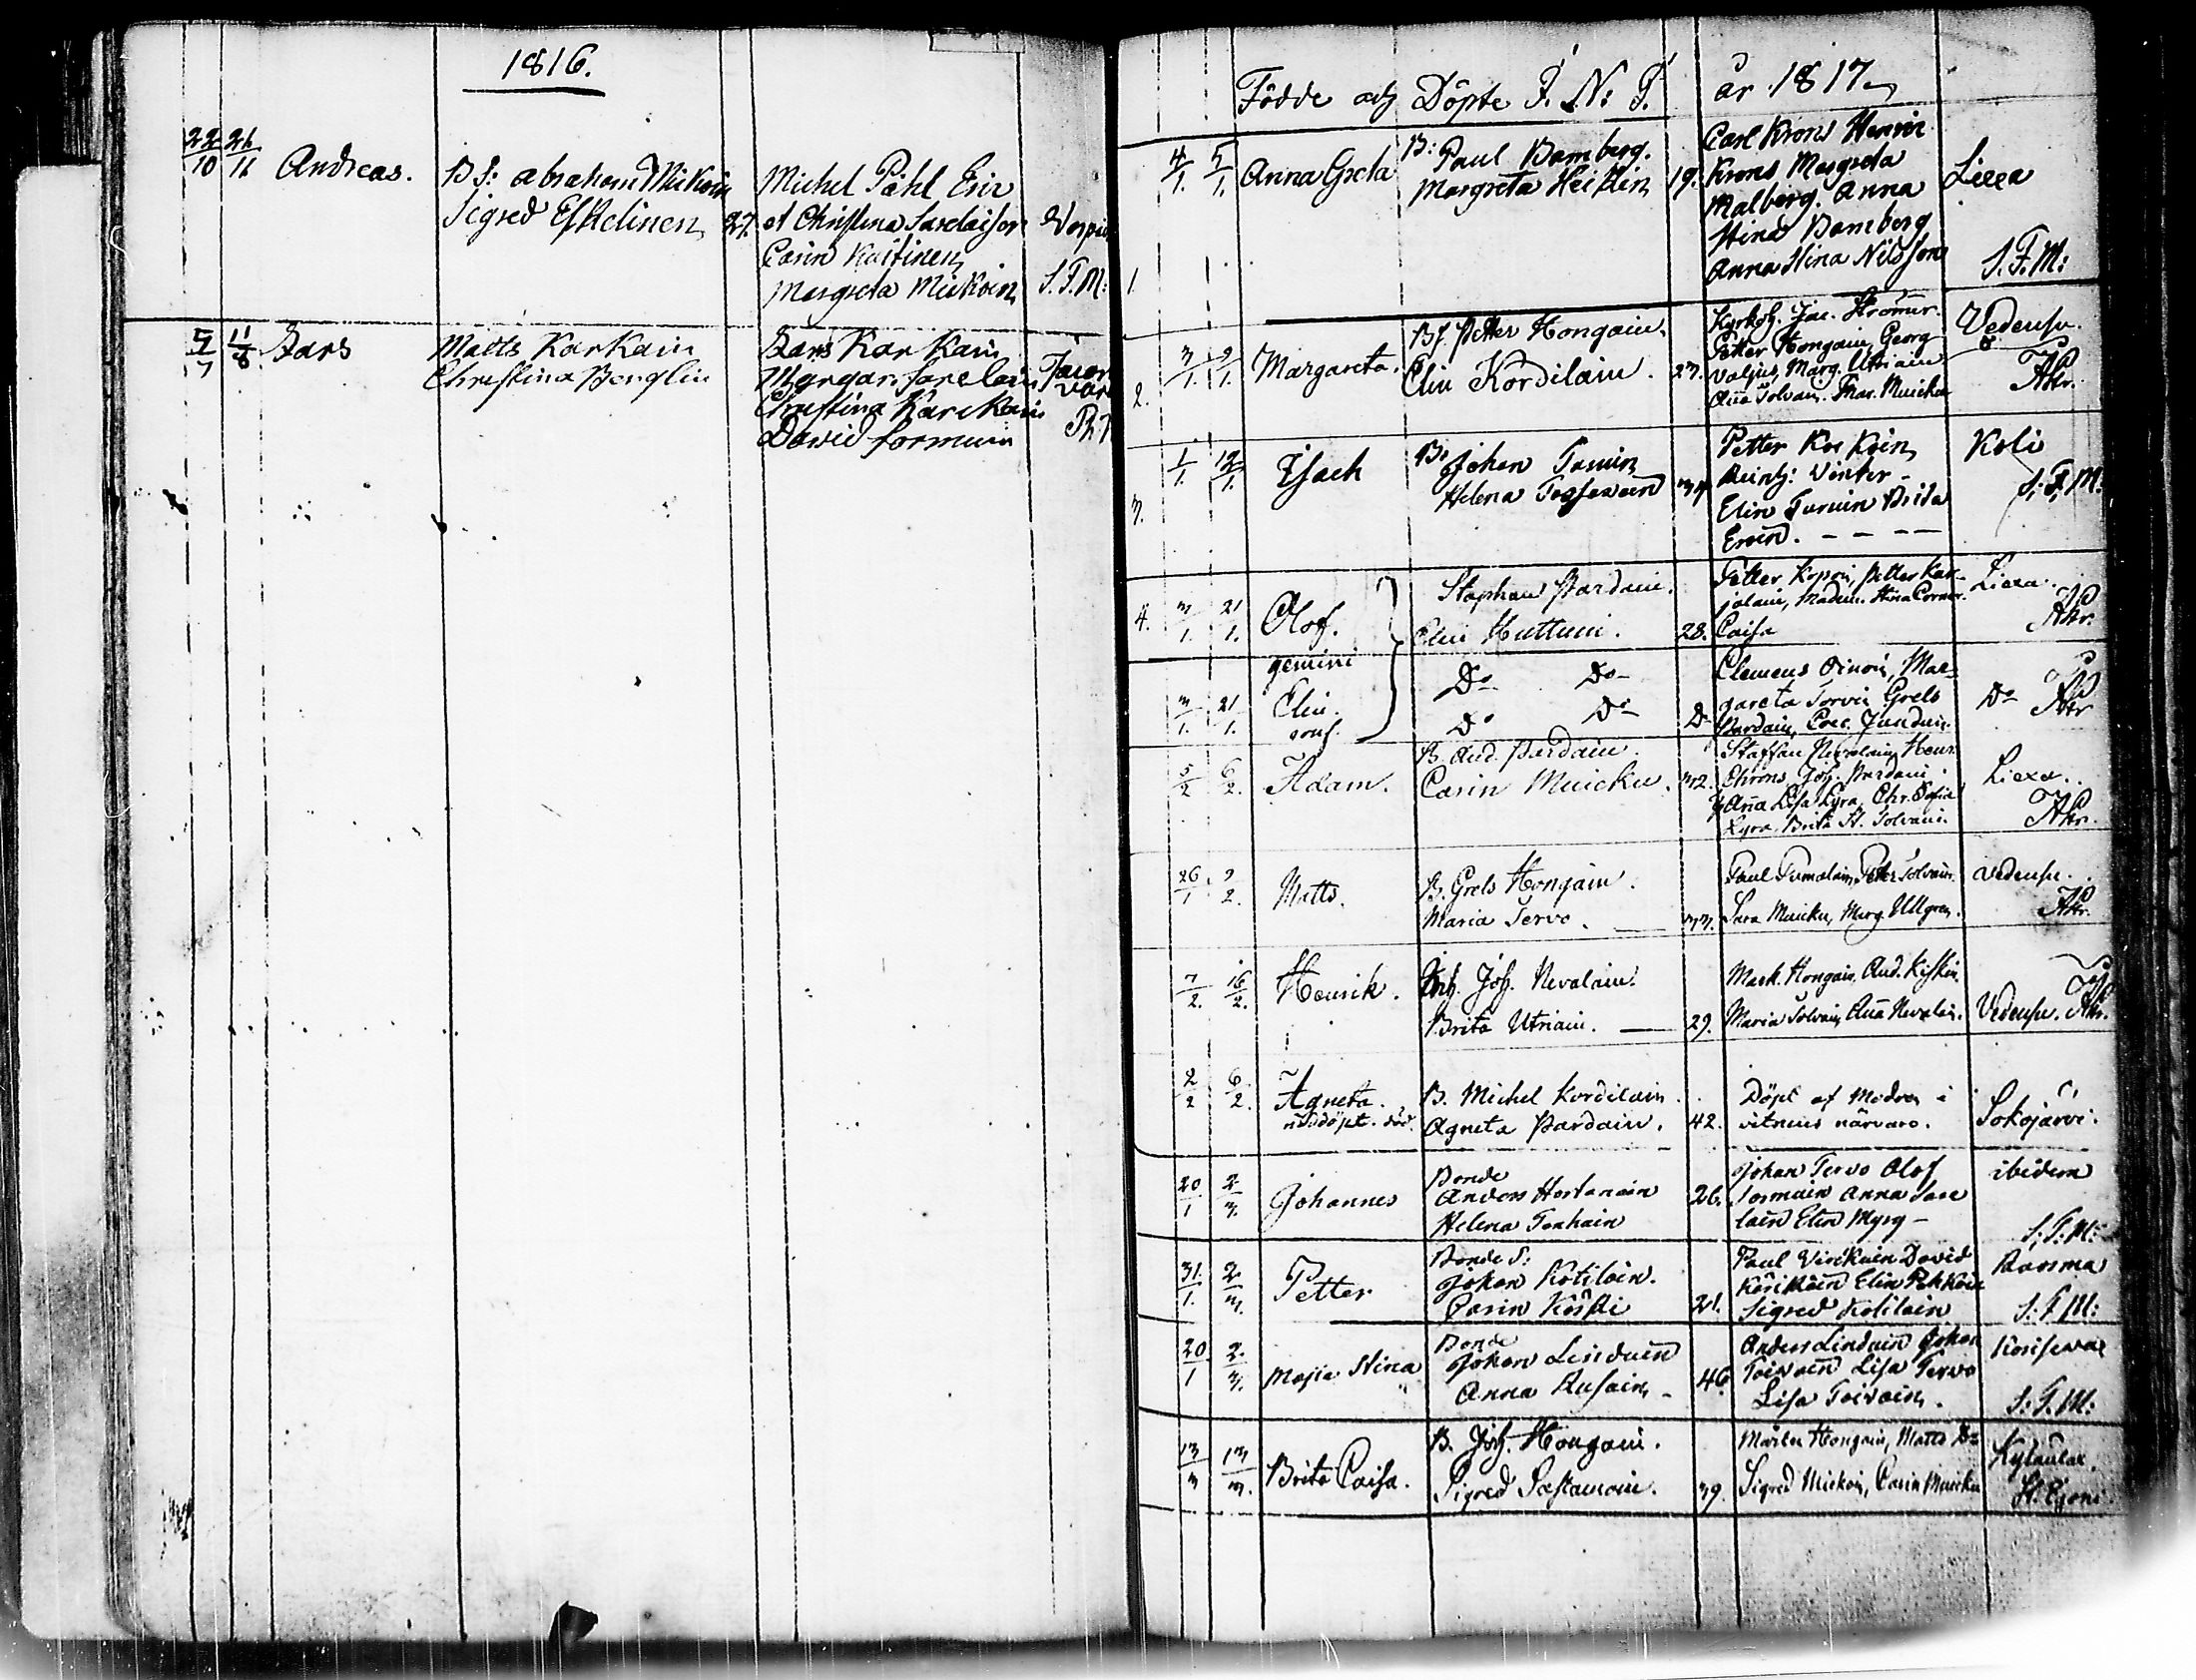 1816.
22/10 26/11 Andreas. B S: Abraham Mickoin
Sigred Eskelinen 27.
Michel Påhl Eric
et Christina Sarelaison
Carin Kaitinen
Margreta Mickoin
S. F. M:
5/7 11/8 Lars Matts Karkain
Christina Benglin
Lars Karkain
Margar. Sarelain
Christina Karckain
David Sormuin
Födde och Döpte I. N: I. år 1817
1. 4/1. 5/1. Anna Greta B: Paul Bamberg.
Margreta Heiskin 19.
Carl Krons Henric
Krons Margreta
Malberg. Anna
Stina Bamberg
Anna Stina Nilsson
Liexa
S. F. M:
2. 3/1. 9/1. Margareta. Bf. Petter Hongain.
Elin Kordilain. 27.
Kyrkoh. Jac. Strömer.
Petter Hongain, Georg
Valjus, Marg. Utriain
Aña Tolvain. Mar. Muicku
Vedensu.
3. 1/1. 12/1. Isach B: Johan Tarvin
Helena 34
Petter Kockoin
Reinh: Winter -
Elin Turuin Brita
Eroin. - - - -
Koli
S. F. M:
4. 3/1. 21/1. Olof. Staphan Pardain.
Elin Huttuin. 28.
Petter Kopoin, Petter Kar-
jalain, Madem. Stina Corner.
Caisa
Liexa.
gemini
3/1. 21/1. Elin. Do Do
Do Do Do
Clemens Oinoin, Mar-
gareta Torvin Grels
Pardain, Carin Junduin
Do
5/2 6/2. Adam. B. And. Pardain.
Carin Muicku. 32.
Staffan Nevalain, Henr.
Chrons, Joh. Pardain.
Aña Lisa Lyra, Chr. Sofia
Lyra. Brita St. Tolvain.
Liexa.
26/1 9/2. Matts. B. Grels Hongain.
Maria Tervo. 33.
Paul Pumalain, Petter Tolvain.
Sara Muicku, Marg. Ullgren.
Vedensu.
7/2. 16/2. Henrik. Joh. Nevalain.
Brita Utriain. 29.
Mark. Hongain, And. Kiskin.
Maria Tolvain, Aña Nevalain.
Vedensu.
2/2 6/2. Agneta. B. Michel Kordilain
nöddöpt. död. Agneta Pardain. 42.
Döpt af Modren i
vitnens närvaro.
Sokojärvi.
20/1 2/3. Johannes Bonde
Anders Hortanain 26.
Helena Tanhain
Johan Tervo Olof
Sormuin Anna Sare
lain Elin Myry -
ibidem
S: F: M:
31/1. 2/3. Petter Bonde S:
Johan Kotilain.
Carin Köski 21.
Paul Virckuin David
Kärikäin Elin Pehkoin
Sigred Kotilain
Räsma
S: F. M:
20/1 2/3. Maria Stina Bonde
Johan Linduin
Anna Ausain - 46.
Anders Linduin Johan
Toivain Lisa Tervo
Lisa Toivain.
Konsevar
S: F. M:
13/3 13/3. Brita Caisa. B. Joh. Hongain.
Sigred Sastamoin. 39.
Mårten Hongain, Matts Do
Sigred Mickoin, Carin Muicku
Kylänlax.